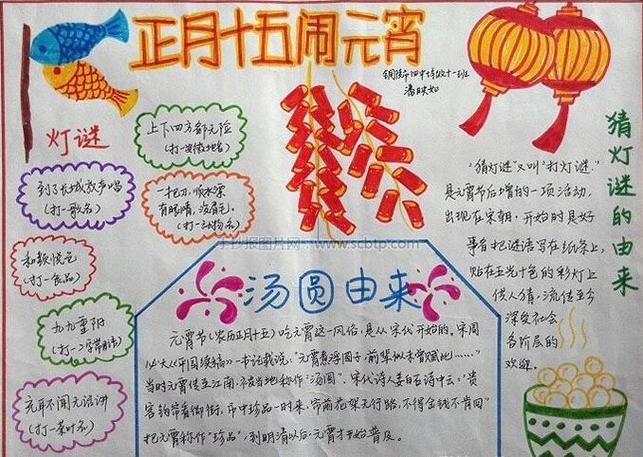 正月十五闹元宵
灯谜
上下四方都无险
到了长城放声唱
(打一歌名)
一把刀,顺水漂
有眼睛,没眉毛。
(打一动物名)
和颜悦色
(打一食品)
九九重阳
充耳不闻无误讲
(打一茶叶名)
猜灯谜的由来
"猜灯谜"又叫"打灯谜"
是元宵节后增的一项活动,
出现在宋朝。开始时是好
事者把谜语写在纸条上,
贴在五光十色的彩灯上
供人猜,流传至今
深受社会
各阶层的
欢迎。
汤圆由来
元宵节(农历正月十五)吃元宵这一风俗,是从宋代开始的。宋周
必大《平园续稿》一书记载说:"元宵煮浮圆子,前辈似未曾赋此……"
当时元宵传至江南,被当地称作"汤圆"。宋人诗人姜白石诗中云:"贵
客钩帘看御街,市中珍品一时来,帘前花架无行路,不得金钱不肯回"
把元宵称作"珍品",到明清以后,元宵才开始普及。
手抄报图片网 www.scbtp.com